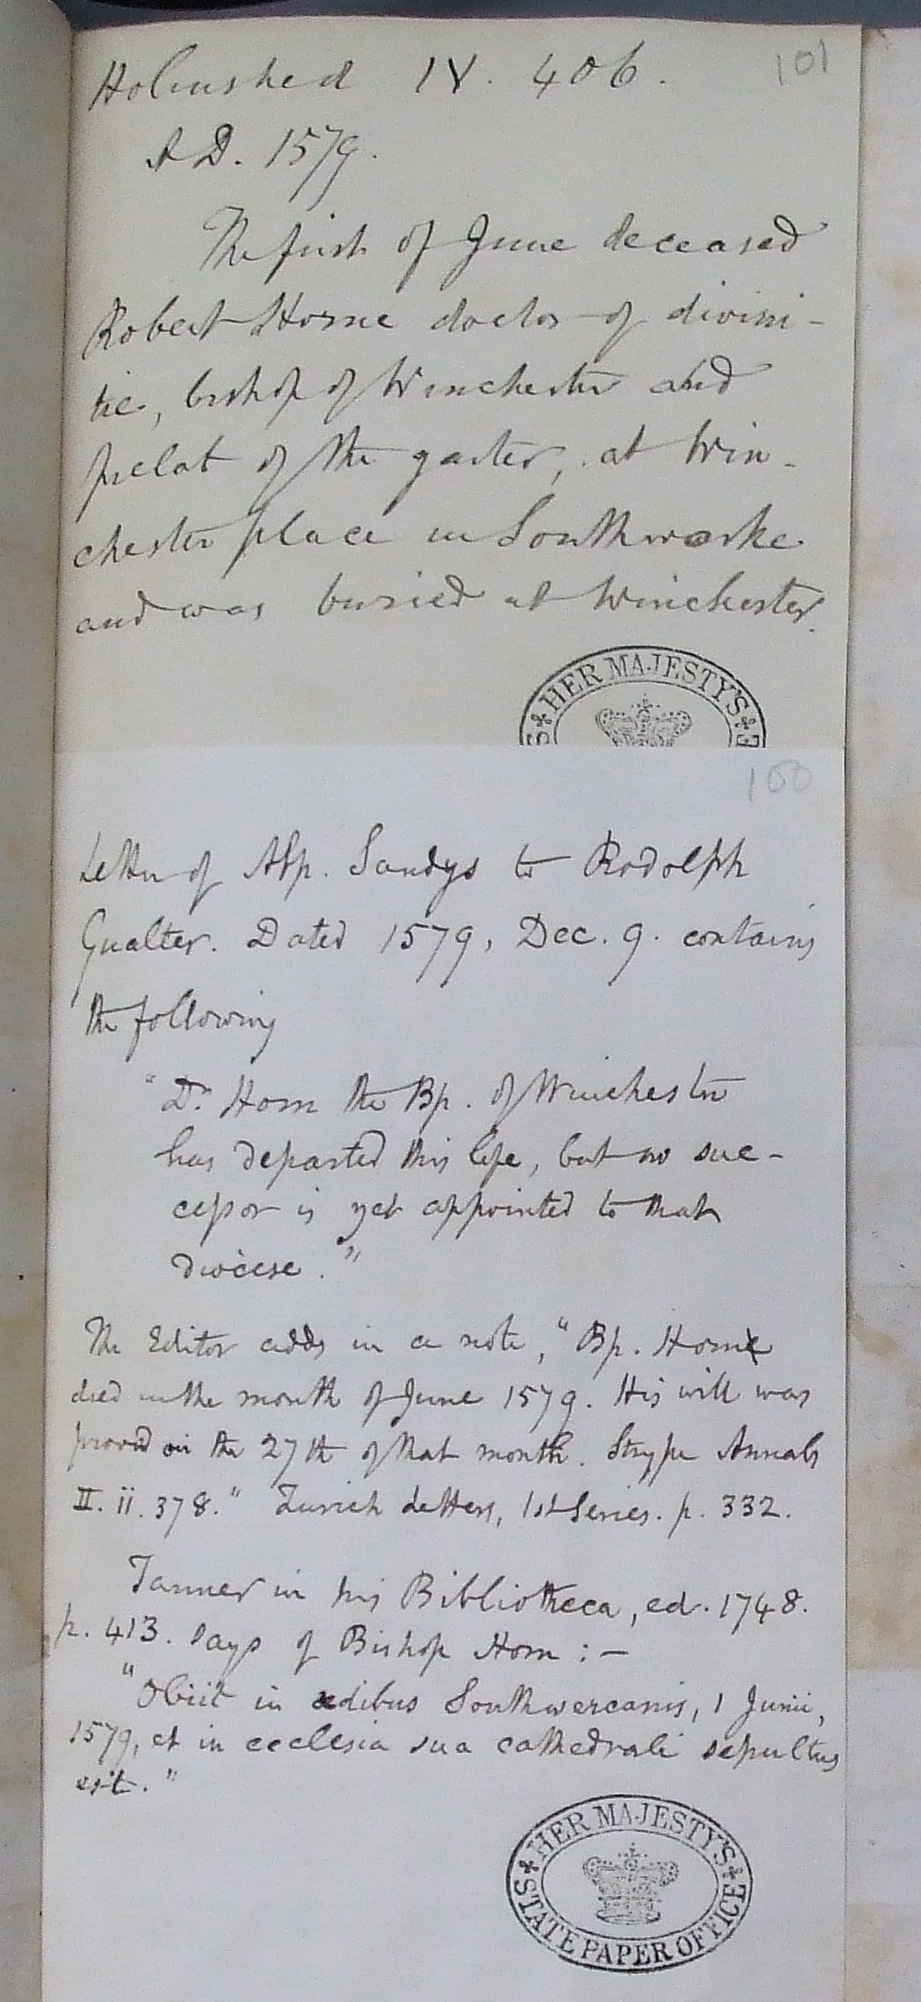 101
Holinshed IV. 406.
A D. 1579.
The first of June deceased
Robert Horne doctor of divini-
tie, bishop of Winchester and
prelat of the garter, at Win-
chester place in Southwarke
and was buried at Winchester.
HER MAJESTY'S
100
Letter of Abp. Sandys to Rodolph
Gualter. Dated 1579, Dec. 9. contains
the following
"Dr. Horn the Bp. of Winchester
has departed this life, but no suc-
cessor is yet appointed to that
diocese."
The Editor adds in a note, "Bp. Horne
died in the month of June 1579. His will was
proved on the 27th of that month. Strype Annals
II. ii. 378." Zurich Letters, 1st Series. p. 332.
Tanner in his Bibliotheca, ed. 1748.
p. 413. says of Bishop Horn :—
"Obiit in ædibus Southwercanis, 1 Junii,
1579, et in ecclesia sua cathedrali sepultus
est."
HER MAJESTY'S
STATE PAPER OFFICE